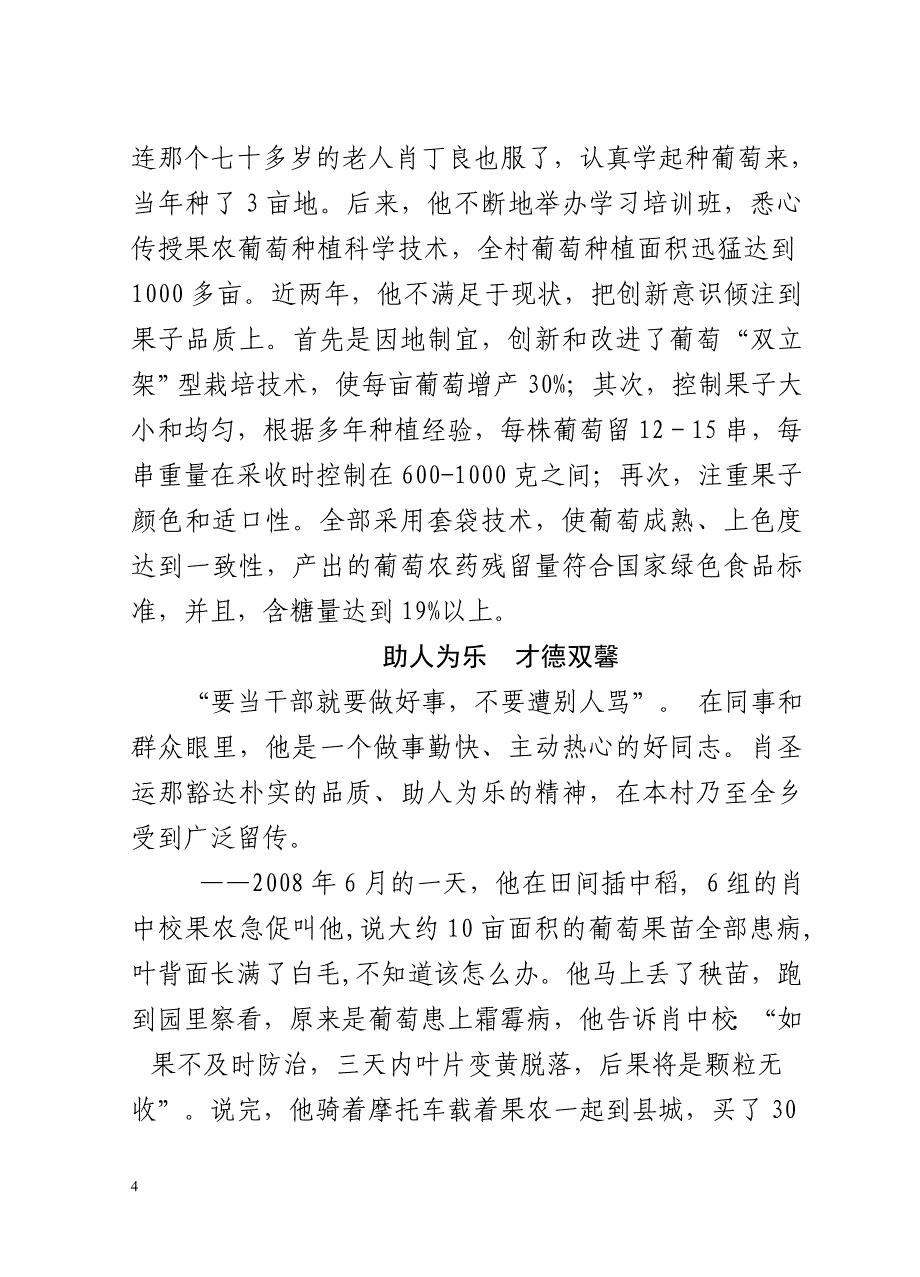 连那个七十多岁的老人肖丁良也服了，认真学起种葡萄来，
当年种了 3 亩地。后来，他不断地举办学习培训班，悉心
传授果农葡萄种植科学技术，全村葡萄种植面积迅猛达到
1000 多亩。近两年，他不满足于现状，把创新意识倾注到
果子品质上。首先是因地制宜，创新和改进了葡萄“双立
架”型栽培技术，使每亩葡萄增产 30%；其次，控制果子大
小和均匀，根据多年种植经验，每株葡萄留 12－15 串，每
串重量在采收时控制在 600-1000 克之间；再次，注重果子
颜色和适口性。全部采用套袋技术，使葡萄成熟、上色度
达到一致性，产出的葡萄农药残留量符合国家绿色食品标
准，并且，含糖量达到 19%以上。
助人为乐　才德双馨
“要当干部就要做好事，不要遭别人骂”。 在同事和
群众眼里，他是一个做事勤快、主动热心的好同志。肖圣
运那豁达朴实的品质、助人为乐的精神，在本村乃至全乡
受到广泛留传。
——2008 年 6 月的一天，他在田间插中稻，6 组的肖
中校果农急促叫他,说大约 10 亩面积的葡萄果苗全部患病,
叶背面长满了白毛,不知道该怎么办。他马上丢了秧苗，跑
到园里察看，原来是葡萄患上霜霉病，他告诉肖中校：“如
果不及时防治，三天内叶片变黄脱落，后果将是颗粒无
收”。说完，他骑着摩托车载着果农一起到县城，买了 30
4